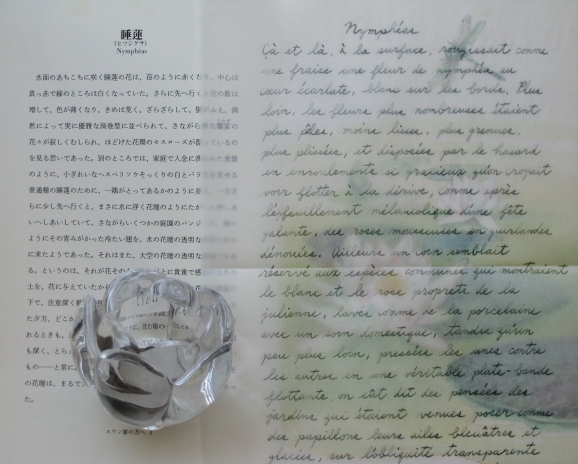 睡蓮
(ヒツジグサ)
Nymphéas
水面のあちこちに咲く睡蓮の花は、苺のように赤くたり、中心は
真っ赤で縁のところは白くなっていた。さらに先へ行く花の数は
増して、色が薄くなり、きめは荒く、ざらざらして、
然によって実に優雅な渦巻型に並べられて、さながら
花々が寂しくむしられ、ほどけた花環のモスローズが漂っているの
を見る思いであった。別のところでは、家庭で入念に
のように、小ぎれいなヘスペリソウそっくりの白とバラ
普通種の睡蓮のために、一隅がとってあるかのように見
らに少し先へ行くと、まさに水に浮く花壇のようにたが
いへしあいしていて、さながらいくつかの庭園のパンジ
ようにその青みがかった冷たい翅を、水の花壇の透明な
に来たようであった。それはまた、大空の花壇でもあっ
る。というのは、それが花その
土を、花に与えていたから
下で、注意深く
た夕方、どこか
れるときも、
も深く、とら
もの――と常に
の花壇は、まるで
た。
スワン家の方へ I
Nymphéas
Çà et là, à la surface, rougissait comme
une fraise une fleur de nymphéa au
cœur écarlate, blanc sur les bords. Plus
loin, les fleurs plus nombreuses étaient
plus pâles, moins lisses, plus grenues,
plus plissées, et disposées par le hasard
en enroulements si gracieux qu'on croyait
voir flotter à la dérive, comme après
l'effeuillement mélancolique d'une fête
galante, des roses mousseuses en guirlandes
dénouées. Ailleurs un coin semblait
réservé aux espèces communes qui montraient
le blanc et le rose proprets de la
julienne, lavés comme de la porcelaine
avec un soin domestique, tandis qu'un
peu plus loin, pressées les unes contre
les autres en une véritable plate-bande
flottante, on eût dit des pensées des
jardins qui étaient venues poser comme
des papillons leurs ailes bleuâtres et
glacées, sur l'obliquité transparente